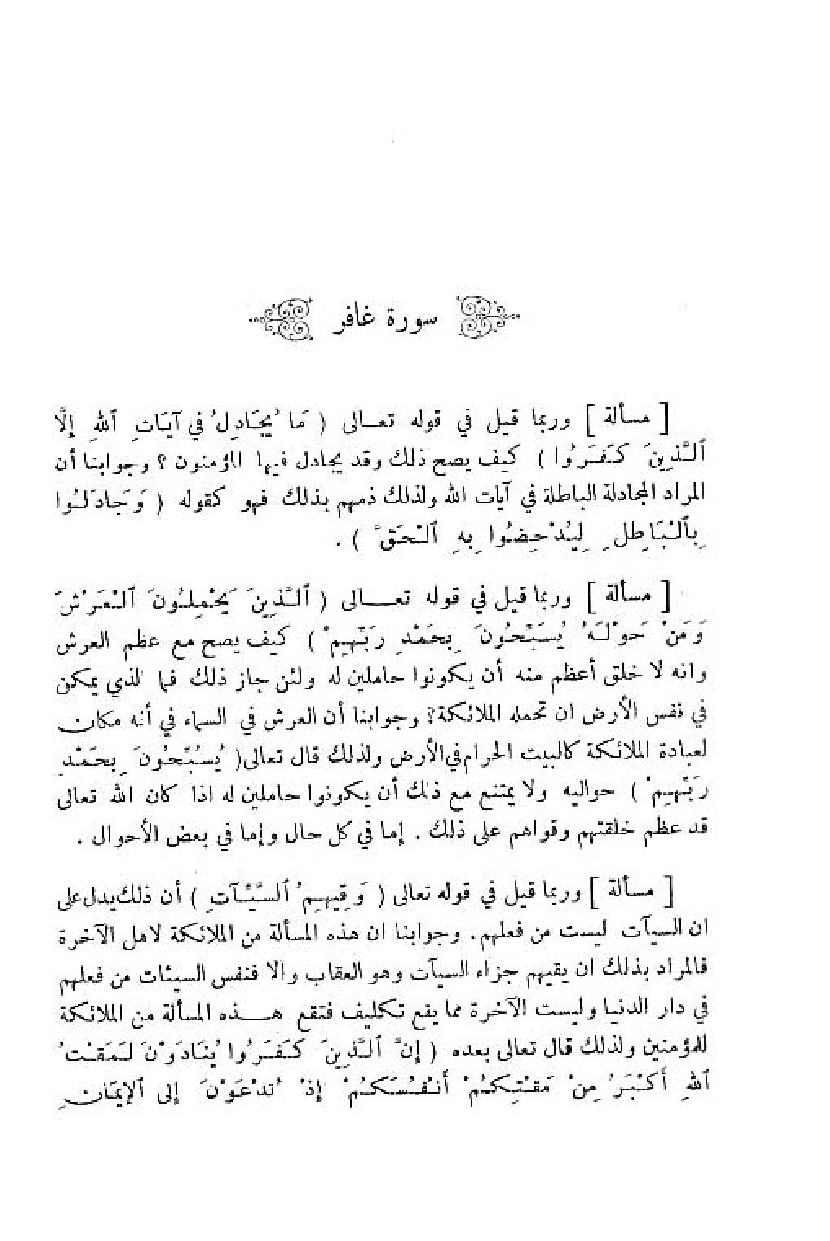 سورة غافر
[ مسألة ] وربما قيل في قوله تعالى ( مَا يُجَادِلُ في آيَاتِ ٱللهِ إلَّا
ٱلَّذِينَ كَفَرُوا ) كيف يصح ذلك وقد يجادل فيها المؤمنون ؟ وجوابنا أن
المراد المجادلة الباطلة في آيات الله ولذلك ذمهم بذلك فهو كقوله ( وَجَادَلُوا
بِٱلْبَاطِلِ لِيُدْحِضُوا بِهِ ٱلْحَقَّ ) .
[ مسألة ] وربما قيل في قوله تعالى ( ٱلَّذِينَ يَحْمِلُونَ ٱلْعَرْشَ
وَمَنْ حَوْلَهُ يُسَبِّحُونَ بِحَمْدِ رَبِّهِمْ ) كيف يصح مع عظم العرش
وانه لا خلق أعظم منه أن يكونوا حاملين له ولئن جاز ذلك فما الذي يمكن
في نفس الأرض ان تحمله الملائكة؟ وجوابنا أن العرش في السماء في أنه مكان
لعبادة الملائكة كالبيت الحرام في الأرض ولذلك قال تعالى ( يُسَبِّحُونَ بِحَمْدِ
رَبِّهِمْ ) حواليه ولا يمتنع مع ذلك أن يكونوا حاملين له اذا كان الله تعالى
قد عظم خلقتهم وقواهم على ذلك . إما في كل حال وإما في بعض الأحوال .
[ مسألة ] وربما قيل في قوله تعالى ( وَقِهِمُ ٱلسَّيِّآتِ ) أن ذلك يدل على
ان السيآت ليست من فعلهم . وجوابنا ان هذه المسألة من الملائكة لاهل الآخرة
فالمراد بذلك ان يقيهم جزاء السيآت وهو العقاب والا فنفس السيئات من فعلهم
في دار الدنيا وليست الآخرة مما يقع تكليف فتقع هذه المسألة من الملائكة
للمؤمنين ولذلك قال تعالى بعده ( إنَّ ٱلَّذِينَ كَفَرُوا يُنَادَوْنَ لَمَقْتُ
ٱللهِ أَكْبَرُ مِنْ مَقْتِكُمْ أَنْفُسَكُمْ إذْ تُدْعَوْنَ إلى ٱلإيمَانِ